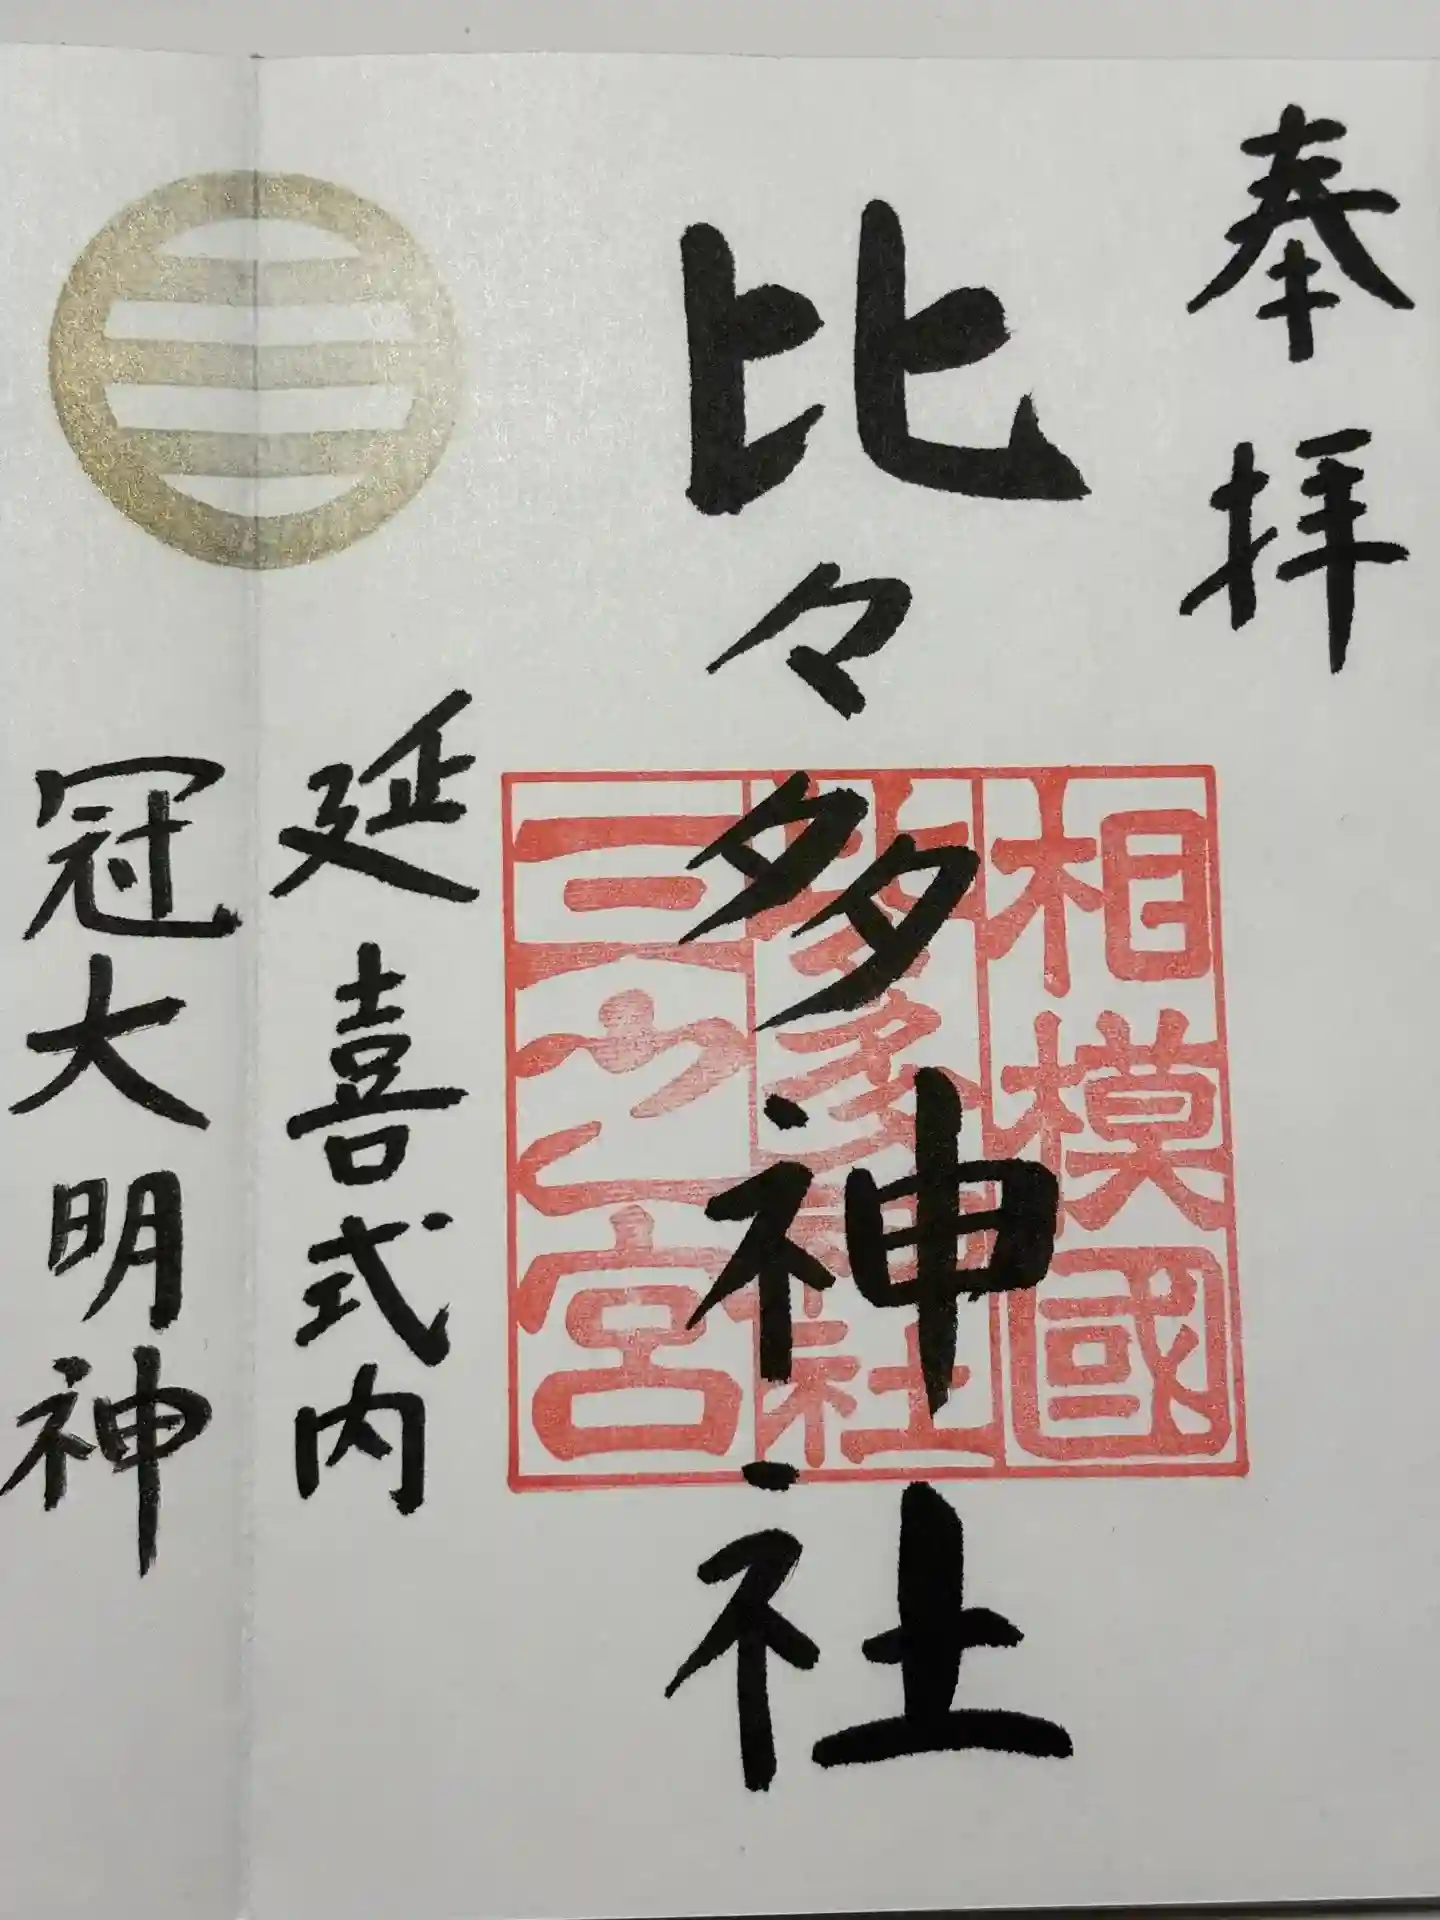 奉拝
比々多神社
相模國
比々多神社
三之宮
延喜式内
冠大明神